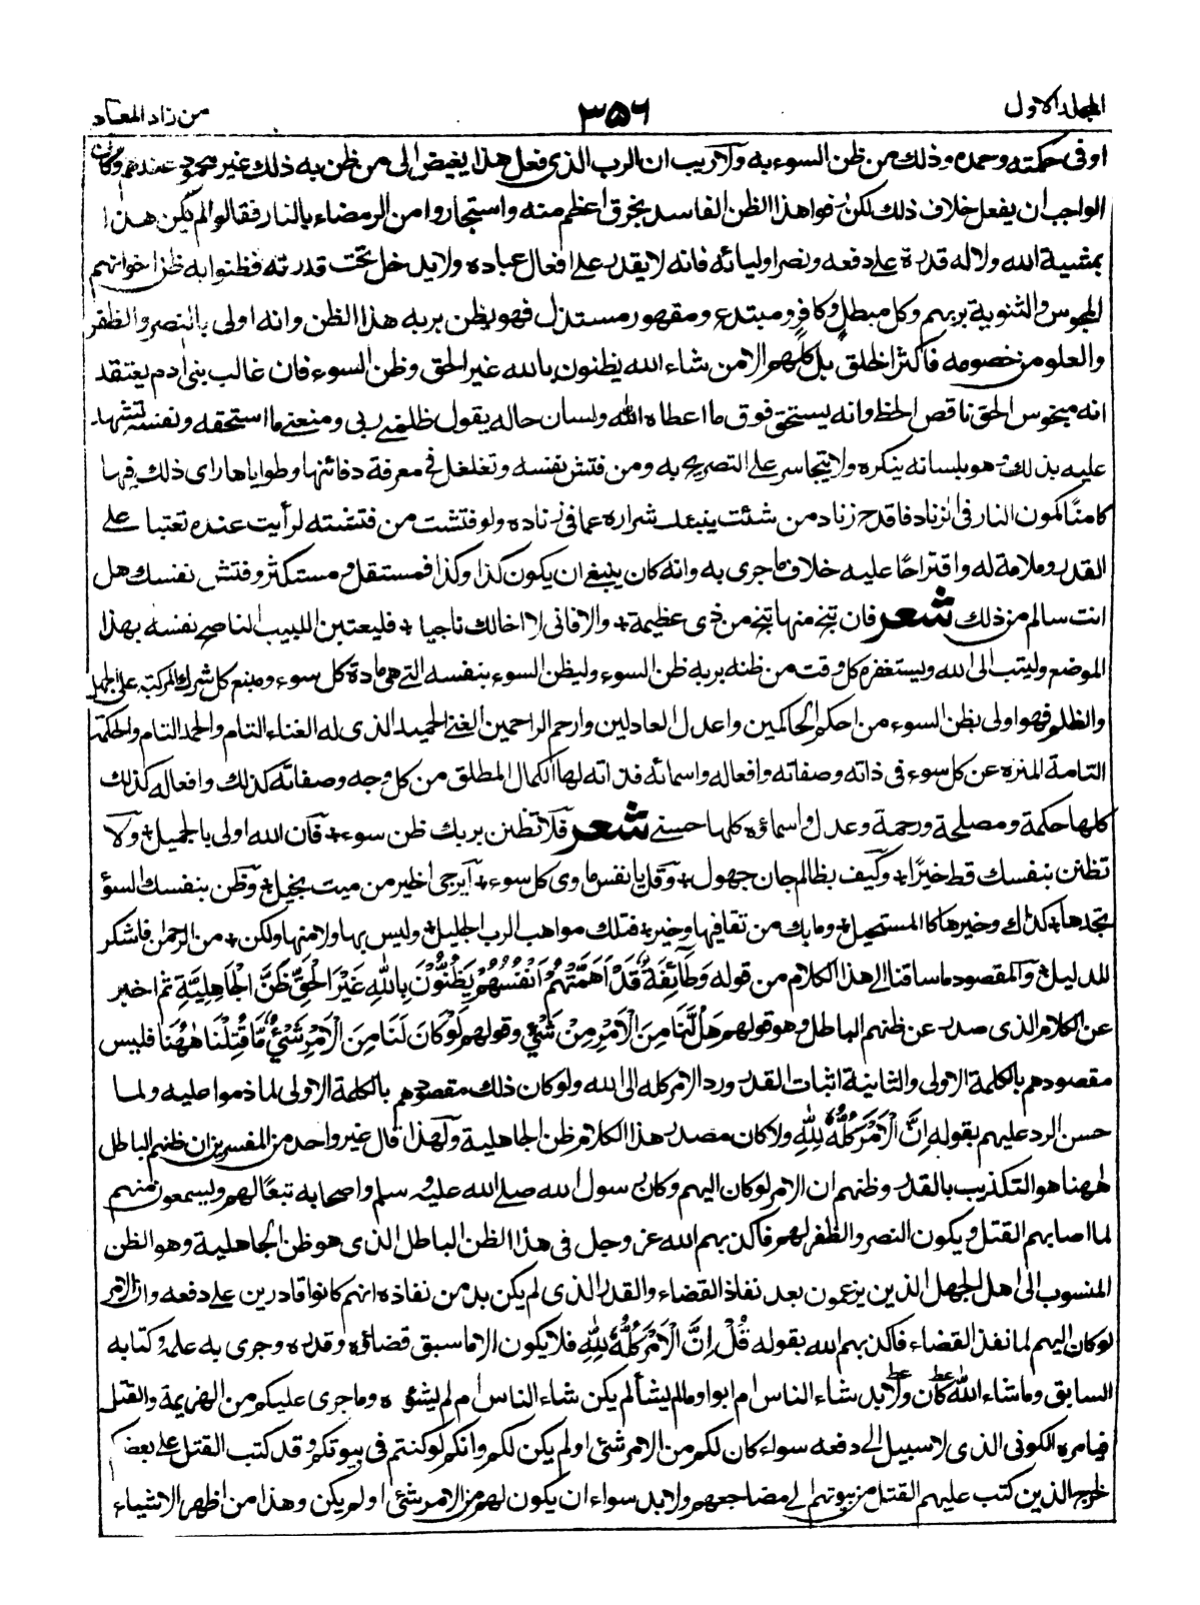 المجلد الاول
٣٥٦
من زاد المعاد
او فى حكمته وحمده وذلك من ظن السوء به ولا ريب ان الرب الذى فعل هذا بغيض الى من ظن به ذلك غير محمود عندهم وكان
الواجب ان يفعل خلاف ذلك لكن رفوا هذا الظن الفاسد بخرق اعظم منه واستجاروا من الرمضاء بالنار فقالوا لم يكن هذا
بمشية الله ولا له قدرة على دفعه ونصر اوليائه فانه لا يقدر على افعال عباده ولا يدخل تحت قدرته فظنوا به ظن اخوانهم
المجوس والثنوية بربهم وكل مبطل وكافر ومبتدع ومقهور مستذل فهو يظن بربه هذا الظن وانه اولى بالنصر والظفر
والعلو من خصومه فاكثر الخلق بل كلهم الا من شاء الله يظنون بالله غير الحق وظن السوء فان غالب بنى ادم يعتقد
انه مبخوس الحق ناقص الحظ وانه يستحق فوق ما اعطاه الله ولسان حاله يقول ظلمنى ربى ومنعنى ما استحقه ونفسه تشهد
عليه بذلك وهو بلسانه ينكره ولا يتجاسر على التصريح به ومن فتش نفسه وتغلغل فى معرفة دفائنها وطواياها راى ذلك فيها
كامنًا كمون النار فى الزناد فاقدح زناد من شئت ينبئك شراره عما فى زناده ولو فتشت من فتشته لرأيت عنده تعتبا على
القدر وملامة له واقتراحًا عليه خلاف ما جرى به وانه كان ينبغى ان يكون كذا وكذا فمستقل ومستكثر وفتش نفسك هل
انت سالم من ذلك شعر فان تنج منها تنج من ذى عظيمة + والا فانى لا اخالك ناجيا + فليعتبن اللبيب الناصح نفسه بهذا
الموضع وليتب الى الله ويستغفره كل وقت من ظنه بربه ظن السوء وليظن السوء بنفسه التى هى مادة كل سوء ومنبع كل شر المركبة على الجهل
والظلم فهو اولى بظن السوء من احكم الحاكمين واعدل العادلين وارحم الراحمين الغنى الحميد الذى له الغناء التام والحمد التام والحكمة
التامة المنزه عن كل سوء فى ذاته وصفاته وافعاله واسمائه فذاته لها الكمال المطلق من كل وجه وصفاته كذلك وافعاله كذلك
كلها حكمة ومصلحة ورحمة وعدل واسماؤه كلها حسنى شعر فلا تظنن بربك ظن سوء + فان الله اولى بالجميل + ولا
تظنن بنفسك قط خيرًا + وكيف بظالم جان جهول + وقل يا نفس ماوى كل سوء + ايرجى الخير من ميت بخيل + وظن بنفسك السؤ
تجدها + كذاك وخيرها كالمستحيل + وما بك من تقا فيها وخير + فتلك مواهب الرب الجليل + وليس بها ولا منها ولكن + من الرحمن فاشكر
للدليل + والمقصود ما ساقنا الى هذا الكلام من قوله وَطَائِفَةٌ قَدْ اَهَمَّتْهُمْ اَنْفُسُهُمْ يَظُنُّوْنَ بِاللّٰهِ غَيْرَ الْحَقِّ ظَنَّ الْجَاهِلِيَّةِ ثم اخبر
عن الكلام الذى صدر عن ظنهم الباطل وهو قولهم هَلْ لَّنَا مِنَ الْاَمْرِ مِنْ شَيْءٍ وقولهم لَوْ كَانَ لَنَا مِنَ الْاَمْرِ شَيْءٌ مَّا قُتِلْنَا هٰهُنَا فليس
مقصودهم بالكلمة الاولى والثانية اثبات القدر ورد الامر كله الى الله ولو كان ذلك مقصودهم بالكلمة الاولى لما ذموا عليه ولما
حسن الرد عليهم بقوله اِنَّ الْاَمْرَ كُلَّهُ لِلّٰهِ ولا كان مصدر هذا الكلام ظن الجاهلية ولهذا قال غير واحد من المفسرين ان ظنهم الباطل
لههنا هو التكذيب بالقدر وظنهم ان الامر لو كان اليهم وكان رسول الله صلى الله عليه وسلم واصحابه تبعًا لهم ويسمعون منهم
لما اصابهم القتل ويكون النصر والظفر لهم فاكذبهم الله عز وجل فى هذا الظن الباطل الذى هو ظن الجاهلية وهو الظن
المنسوب الى اهل الجهل الذين يزعمون بعد نفاذ القضاء والقدر الذى لم يكن بد من نفاذه انهم كانوا قادرين على دفعه وان الامر
لو كان اليهم لما نفذ القضاء فاكذبهم الله بقوله قُلْ اِنَّ الْاَمْرَ كُلَّهُ لِلّٰهِ فلا يكون الا ما سبق قضاؤه وقدره وجرى به علمه وكتابه
السابق وما شاء الله كان ولا بد شاء الناس ام ابوا وما لم يشأ لم يكن شاء الناس ام لم يشؤه وما جرى عليكم من الهزيمة والقتل
فبامره الكونى الذى لا سبيل الى دفعه سواء كان لكم من الامر شئ او لم يكن لكم وانكم لو كنتم فى بيوتكم وقد كتب القتل على بعضكم
لخرج الذين كتب عليهم القتل من بيوتهم الى مضاجعهم ولا بد سواء ان يكون لهم من الامر شئ او لم يكن وهذا من اظهر الاشياء